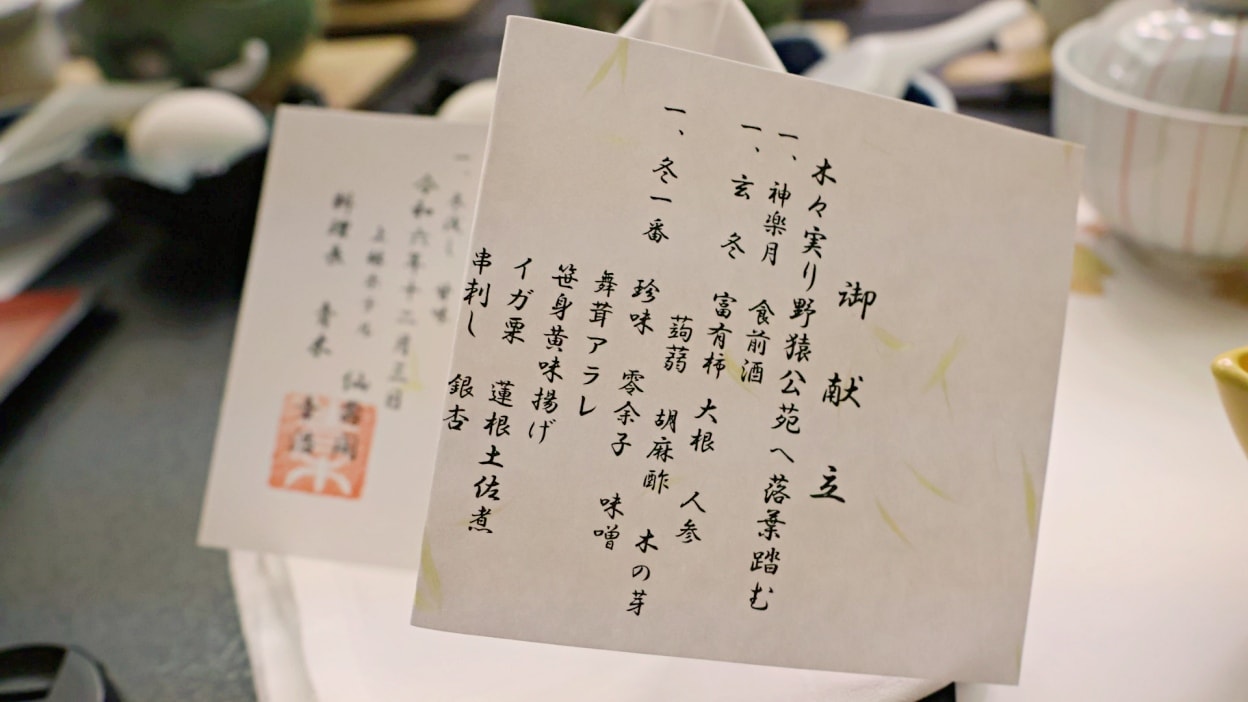 御献立
木々実り野猿公苑へ落葉踏む
一、神楽月 食前酒
一、玄冬 富有柿 大根 人参
蒟蒻 胡麻酢 木の芽
一、冬一番 珍味 零余子 味噌
舞茸アラレ
笹身黄味揚げ
イガ栗 蓮根土佐煮
串刺し 銀杏
一、 甘味
令和六年十二月三日
上林ホテル 仙壽閣
料理長 青木